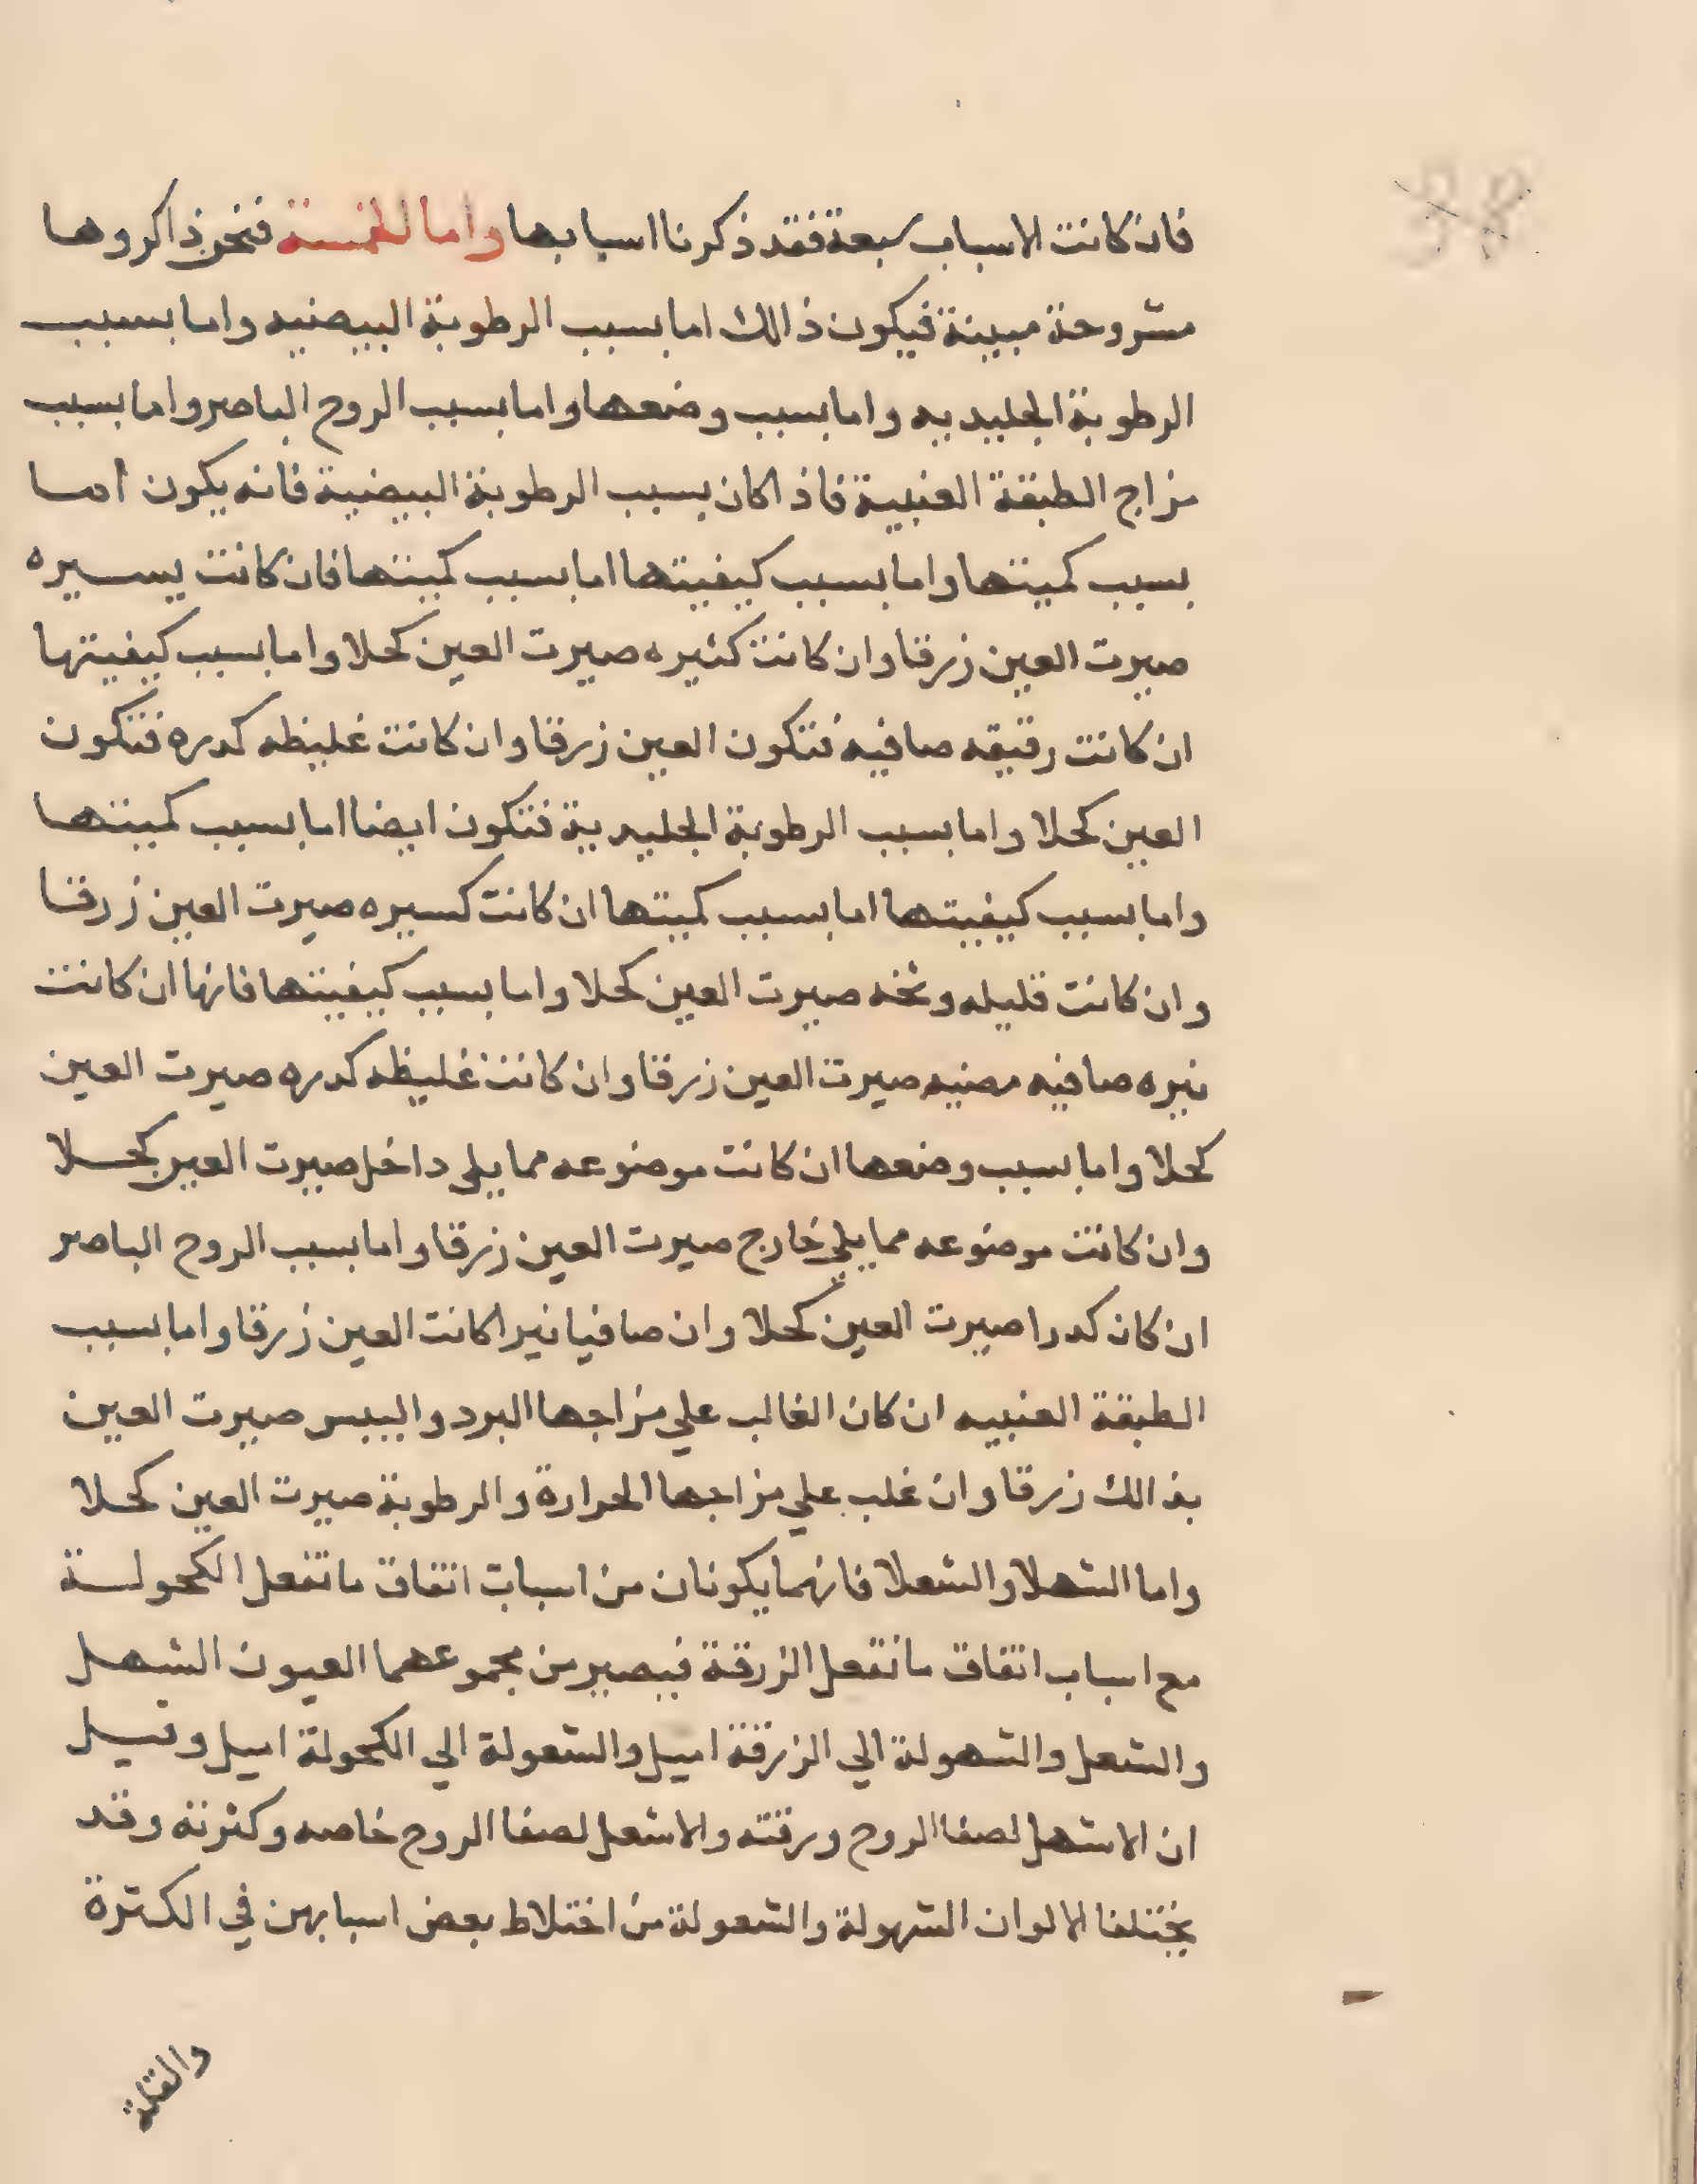 فان كانت الاسباب سبعة فقد ذكرنا اسبابها واما الخمسة فنحن ذاكروها
مشروحة مبينة فيكون ذالك اما بسبب الرطوبة البيضيه واما بسبب
الرطوبة الجليديه واما بسبب وضعها واما بسبب الروح الباصر واما بسبب
مزاج الطبقة العنبية فاذا كان بسبب الرطوبة البيضية فانه يكون اما
بسبب كميتها واما بسبب كيفيتها اما بسبب كميتها فان كانت يسيره
صيرت العين زرقا وان كانت كثيره صيرت العين كحلا واما بسبب كيفيتها
ان كانت رقيقه صافيه فتكون العين زرقا وان كانت غليظه كدره فتكون
العين كحلا واما بسبب الرطوبة الجليدية فتكون ايضا اما بسبب كميتها
واما بسبب كيفيتها اما بسبب كميتها ان كانت كسيره صيرت العين زرقا
وان كانت قليله صيرت العين كحلا واما بسبب كيفيتها فانها ان كانت
نيره صافيه مضيه صيرت العين زرقا وان كانت غليظه كدره صيرت العين
كحلا واما بسبب وضعها ان كانت موضوعه مما يلي داخل صيرت العين كحلا
وان كانت موضوعه مما يلي خارج صيرت العين زرقا واما بسبب الروح الباصر
ان كان كدرا صيرت العين كحلا وان صافيا نيرا كانت العين زرقا واما بسبب
الطبقة العنبيه ان كان الغالب علي مزاجها البرد واليبس صيرت العين
بذالك زرقا وان غلب علي مزاجها الحرارة والرطوبة صيرت العين كحلا
واما الشهلا والشعلا فانهما يكونان من اسباب اتفاق ما تفعل الكحولة
مع اسباب اتفاق ما تفعل الزرقة فيصير من مجموعهما العيون الشهل
والشعل والشهولة الي الزرقة اميل والشعولة الي الكحولة اميل وقيل
ان الاشهل لصفا الروح ورقته والاشعل لصفا الروح خاصه وكثرته وقد
يختلفا الالوان الشهولة والشعولة من اختلاط بعض اسبابهن في الكثرة
والقلة